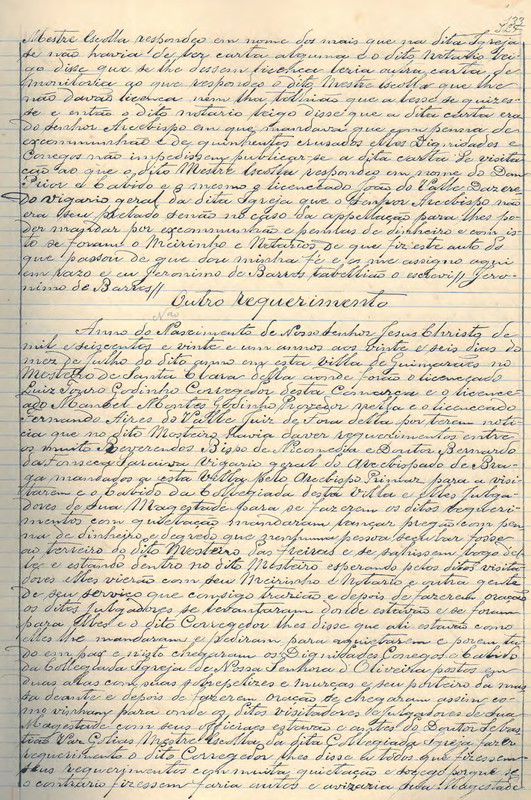 133
Mestre Escolla respondeo em nome dos mais que na dita Igreja
se não havia de ler carta alguma e o dito Notario
ao disse que se lhe dessem licença leria outra carta de
monitoria ao que respondeo o dito Mestre Escolla que lhe
não davão licença nem lha tolhião que a lesse se quizes-
se e então o dito notario disse que a dita carta era
do Senhor Arcebispo em que mandava que com penna de
excommunhão e de quinhentos crusados ellas Dignidades e
Conegos não impedissem publicar-se a dita carta de visita
ção ao que o dito Mestre Escolla respondeo em nome do Dom
Prior e Cabido e o mesmo o licenceado João do Valle
do vigario geral da dita Igreja que o Senhor Arcebispo não
era seu prelado senão no caso da appellação para lhes po-
der mandar por excommunhão e pennas de dinheiro e com is-
to se foram o Meirinho e Notarios de que fiz esta auto do
que passou de que dou minha fé e os me assigno aqui
em razo e eu Jeronimo de Barros tabellião o escrevi // Jero-
nimo de Barros //
Outro requerimento
Anno do Nascimento de Nosso Senhor Jesus Christo de
mil e seiscentos e vinte e um annos aos vinte e seis dias do
mez de Julho do dito anno em esta villa de Guimarães no
Mosteiro de Santa Clara della aonde forão o licenceado
Luiz Godinho Corregedor desta Comarca e o licence-
ado Manoel Montes Godinho Provedor nella e o licenceado
Fernando Aires do Valle Juiz de Fora della por terem noti-
cia que no dito Mosteiro havia daver requerimentos entre
os muito Reverendos Bispo de Nicomedia e Doutor Bernardo
da Fonseca Vigario geral do Arcebispado de Bra-
ga mandados a esta villa pelo Arcebispo Primaz para a visi-
tarem e o Cabido da Collegiada desta villa e elles Julga-
dores de Sua Magestade para se fazerem os ditos requeri-
mentos com quietação mandaram lançar pregão com pen-
na de dinheiro e degredo que nenhuma pessoa secular fosse
ao terreiro do dito Mosteiro das freiras e se sahissem logo de-
lle e estando dentro no dito Mosteiro esperando pelos ditos visita-
dores elles vierão com seu Meirinho e Notario e outra gente
de seu serviço que comsigo trazião e depois de fazerem oração
os ditos Julgadores se levantaram donde estavão e se foram
para elles e o dito Corregedor lhes disse que ali estavão como
elles lhe mandaram e pediram para aquietarem e porem tu-
do em paz e nisto chegaram os Dignidades Conegos e Cabido
da Collegiada Igreja de Nossa Senhora d'Oliveira postos em
duas alas com suas sobrepelizes e murças e seu porteiro da ma-
sa deante e depois de fazerem oração se chegaram assim co-
mo vinham para onde os ditos visitadores e Julgadores de Sua
Magestade com seus officiaes estavão e antes do Doutor Sebas
tião Vaz Golias Mestre Escolla da dita Collegiada Igreja fazer
requerimento o dito Corregedor lhes disse a todos que fizessem
seus requerimentos com muita quietação e socego porque se
o contrario fizessem faria autos e avizaria Sua Magestade